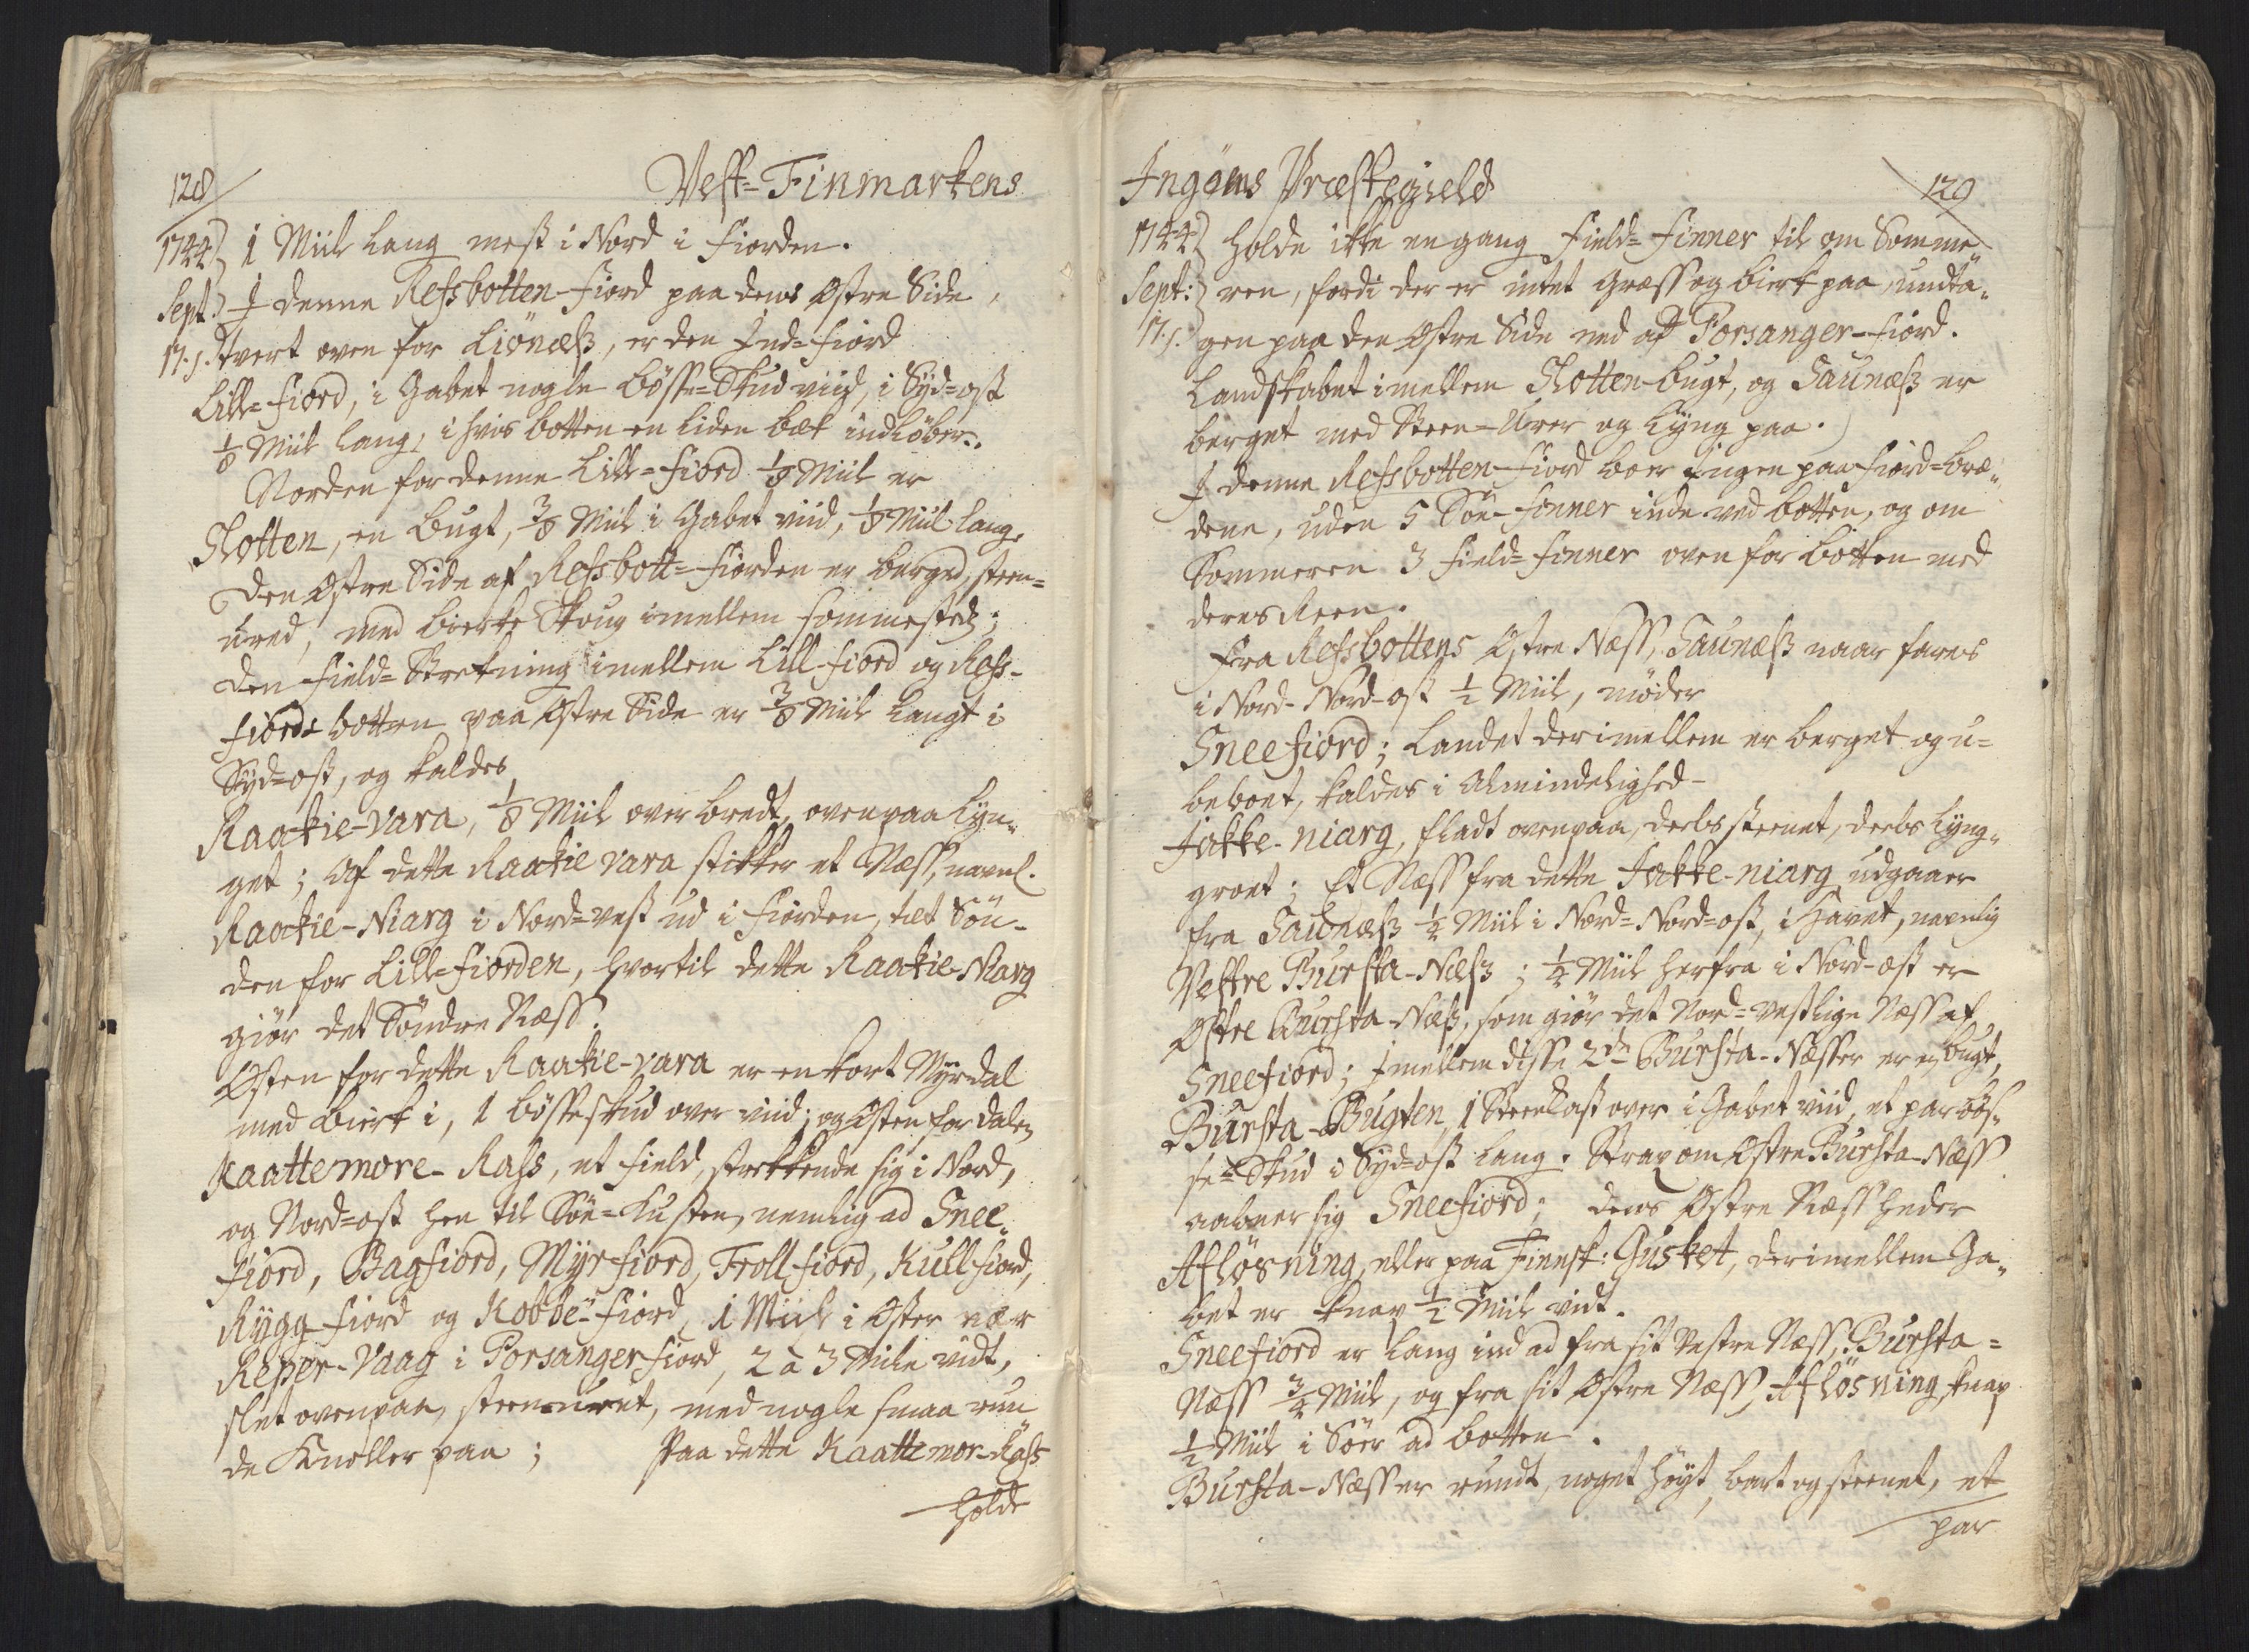 128
Vest-Finmarkens
1744) 1 Miil lang mest i Nord i Fiorden.
Sept:) I denne Refsbotten-Fiord paa dens Østre Side,
17. s. tvert oven for Liönæss, er den Ind-Fiord
Lill-Fiord, i Gabet nogle bösse-Skud viid, i Syd-ost
1/8 Miil lang, i hvis botten en liden bæk indlöber.
Norden for denne Lill-Fiord 1/8 Miil er
Slotten, en bugt, 3/8 Miil i Gabet viid, 1/8 Miil lang.
Den Østre Side af Refsbott-Fiorden er berged, steen-
ured, med bierke Skoug imellem sommesteds;
Den Field-Strekning imellem Lill-fiord og Refs-
fiords botten paa Østre Side er 3/8 Miil langt i
Syd-ost, og kaldes
Raakie-vara, 1/8 Miil over bredt, oven paa lyn-
get; Af dette Raakie vara stikker et Næss, navnl.
Raakie-Niarg i Nord-vest ud i Fiorden, tæt Sön-
den for Lill-Fiorden, hvortil dette Raakie-Niarg
giör det Söndre Næss.
Østen for dette Raakie-vara er en kort Myrdal
med bierk i, 1 bösseskud over viid; og Østen for Dalen
Kaattemore-Rass, et Field, strekkende sig i Nord,
og Nord-ost hen til Söe-Kusten, nemlig ad Snee-
fiord, Bagfiord, Myr-fiord, Troll fiord, Kull fiord,
Rygg fiord og Kobbe-Fiord, 1 Miil i Øster nær
Repper-Vaag i Porsangerfiord, 2 à 3 Mile vidt,
slet ovenpaa, steenuret, med nogle smaa run
de Knoller paa; Paa dette Kaattemor-Rass
holde
Ingöens Præstegield
129
1744) holde ikke en gang Field-Finner til om Somme-
Sept:) ren, fordi der er intet Græss og bierk paa, undta-
17. s. gen paa den Østre Side ned ad Porsanger-fiord.
Landskabet imellem Slotten-bugt, og Saunæss er
berget med Steen-Urer og Lyng paa.
I denne Refsbotten-Fiord boer Ingen paa Fiord-bræ-
dene, uden 5 Söe-Finner inde ved botten, og om
Sommeren 3 Field-Finner oven for botten med
deres Reen.
Fra Refsbottens Østre Næss, Saunæss naar fares
i Nord-Nord-ost 1/2 Miil, möder
Sneefiord; Landet derimellem er berget og u-
beboet, kaldes i Almindelighed-
Jakke-niarg, fladt ovenpaa, deels steenet, deels lyng-
groet; Et Næss fra dette Jakke-niarg udgaaer
fra Saunæss 1/4 Miil i Nord-Nord-ost, i Havet, navnlig
Vestre Bursta-Næss; 1/4 Miil herfra i Nord-ost er
Østre Bursta-Næss, som giör det Nord-vestlige Næss af
Sneefiord; Imellem disse 2de Bursta-Næsser er en bugt,
Bursta-Bugten, 1 Steenkast over i Gabet viid, et par bös-
se-Skud i Syd-ost lang. Strax om Østre Bursta-Næss
aabner sig Sneefiord; dens Østre Næss heder
Aflösning, eller paa Finnsk: Gusket, derimellem Ga-
bet er knap 1/2 Miil vidt.
Sneefiord er lang ind ad fra sit Vestre Næss, Bursta-
Næss 3/4 Miil, og fra sit Østre Næss, Aflösning, knap
1/2 Miil i Söer ad botten.
Bursta-Næss er rundt, noget höyt, bart og steenet, et
par